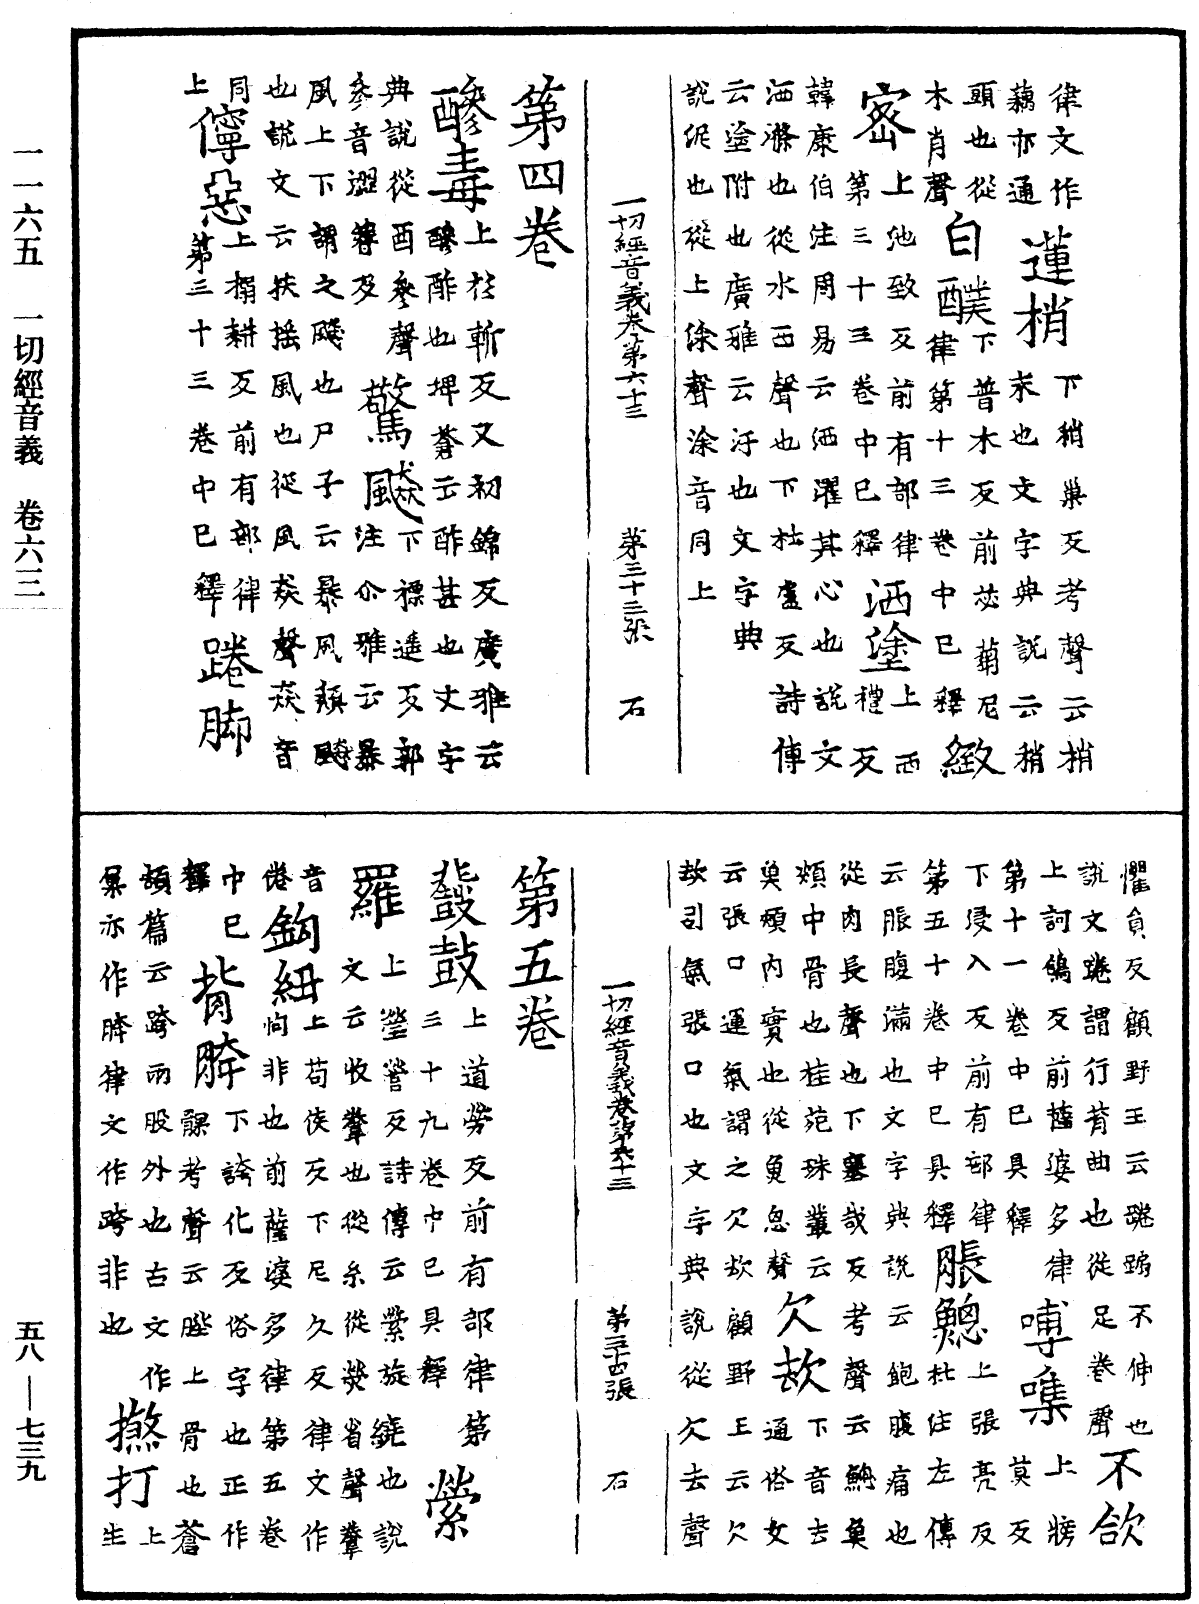 一一六五 一切經音義 卷六三
五八—七三九
律文作蓮梢下稍巢反考聲云梢
藕亦通
頭也從木肖聲
末也文字典說云稍
白醭下普木反前苾蒭尼
律第十三卷中已釋緻
密上池致反前有部律
第三十三卷中已釋洒塗上西
禮反
韓康伯注周易云洒濯其心也說文
洒滌也從水西聲也下杜盧反詩傳
云塗附也廣雅云汙也文字典
說泥也從土涂聲涂音同上
一切經音義卷第六十三 第三十三張 石
第四卷
醦毒上於斬反又初錦反廣雅云
醦酢也埤蒼云酢甚也文字
典說從酉參聲
參音澀簪反驚飇下褾遥反郭
注介雅云暴
風上下謂之飇也尸子云暴風頹飇
也說文云扶搖風也從風猋聲猋音
同上
儜惡上搦耕反前有部律
第三十三卷中已釋踡脚
懼負反顧野王云踡跼不伸也
說文踡謂行背曲也從足卷聲不欱
上訶鴿反前薩婆多律
第十一卷中已具釋
嚩㗱上牓莫反
下浸入反前有部律
第五十卷中已具釋脹䚡上張亮反
杜注左傳
云脹腹滿也文字典說云飽腹痛也
從肉長聲也下塞哉反考聲云䚡魚
頰中骨也桂苑珠叢云下音去
魚頰內實也從魚思聲欠㰦通俗文
云張口運氣謂之欠㰦顧野王云欠
㰦引氣張口也文字典說從欠去聲
一切經音義卷第六十三 第三十四張 石
第五卷
鼗鼓上道勞反前有部律第
三十九卷中已具釋縈
羅上瑩營反詩傳云縈旋繞也說
文云收卷也從糸從熒省聲卷
音倦
鉤紐上苟侯反下尼久反律文作
恂非也前薩婆多律第五卷
中已釋
背胯下誇化反俗字也正作
髁考聲云䏶上骨也蒼
頡篇云跨兩股外也古文作
𣎆亦作䠸律文作跨非也撚打上
生